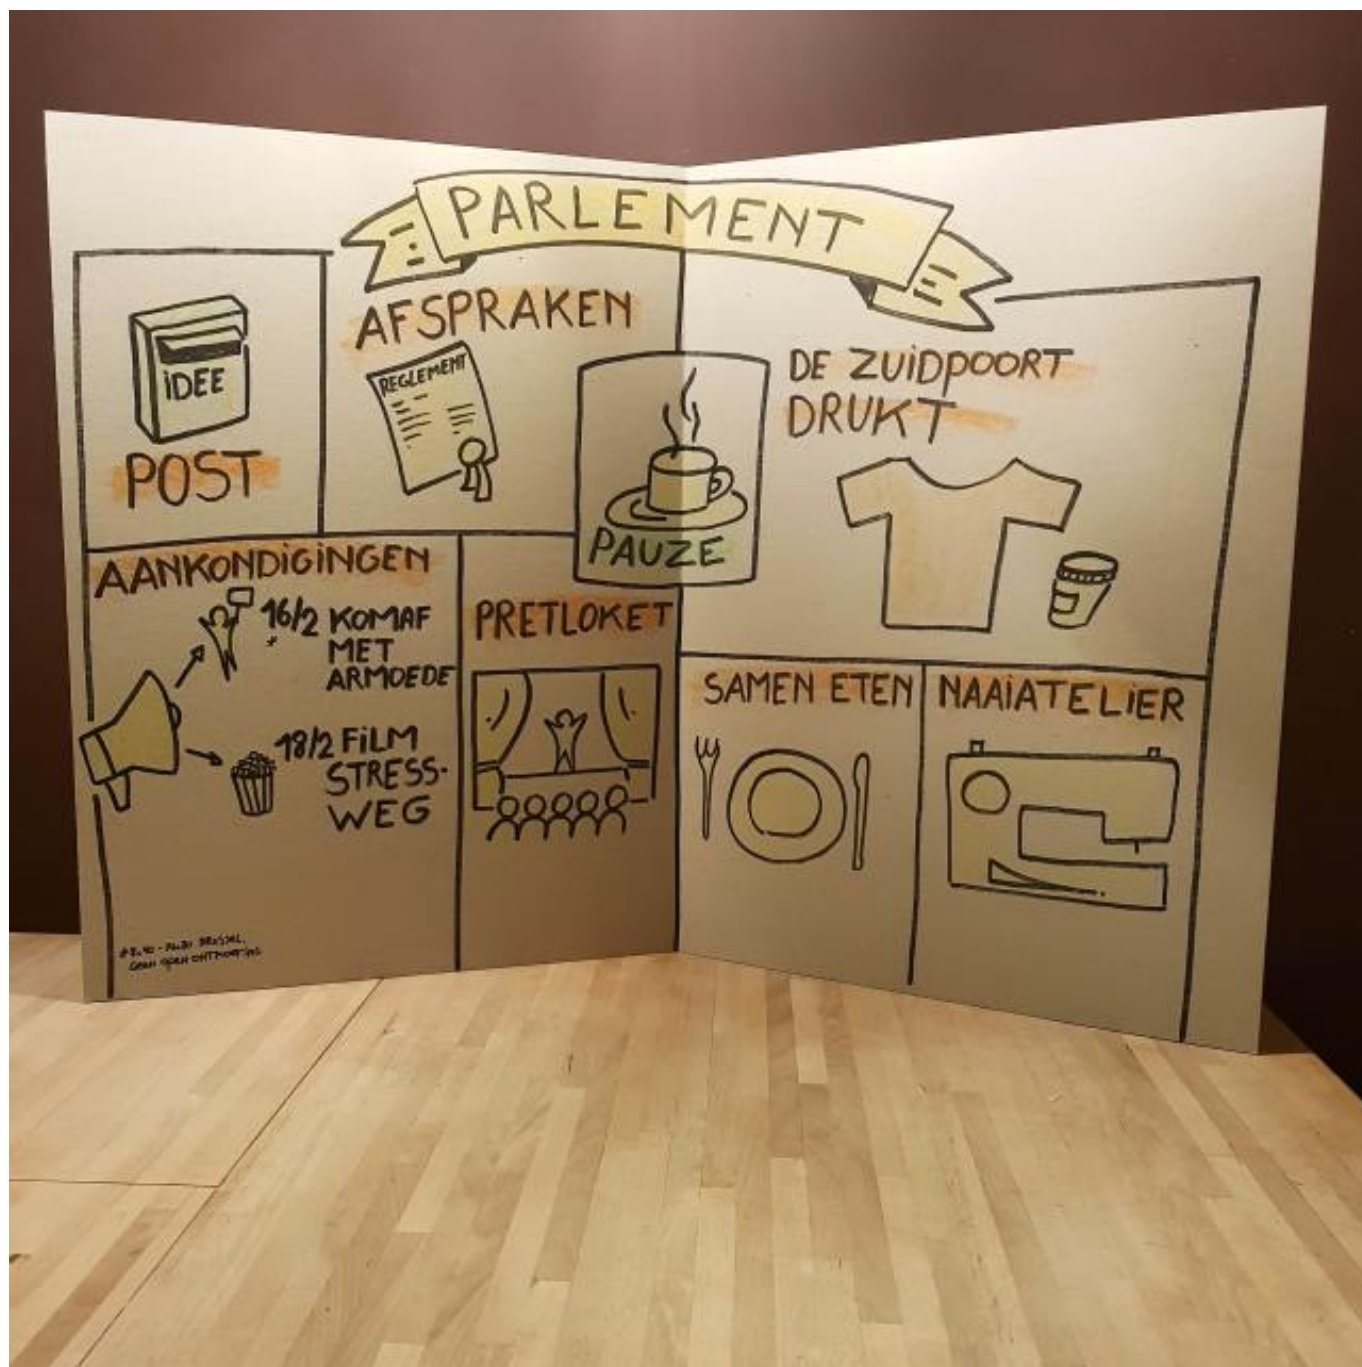 PARLEMENT
IDEE
POST
AFSPRAKEN
REGLEMENT
PAUZE
DE ZUIDPOORT
DRUKT
AANKONDIGINGEN
16/2 KOMAF
*
MET
ARMOEDE
18/2 FILM
STRESS-
WEG
PRETLOKET
SAMEN ETEN
NAAIATELIER
BRUSSEL.
GEEN OPEN ONTMOETING